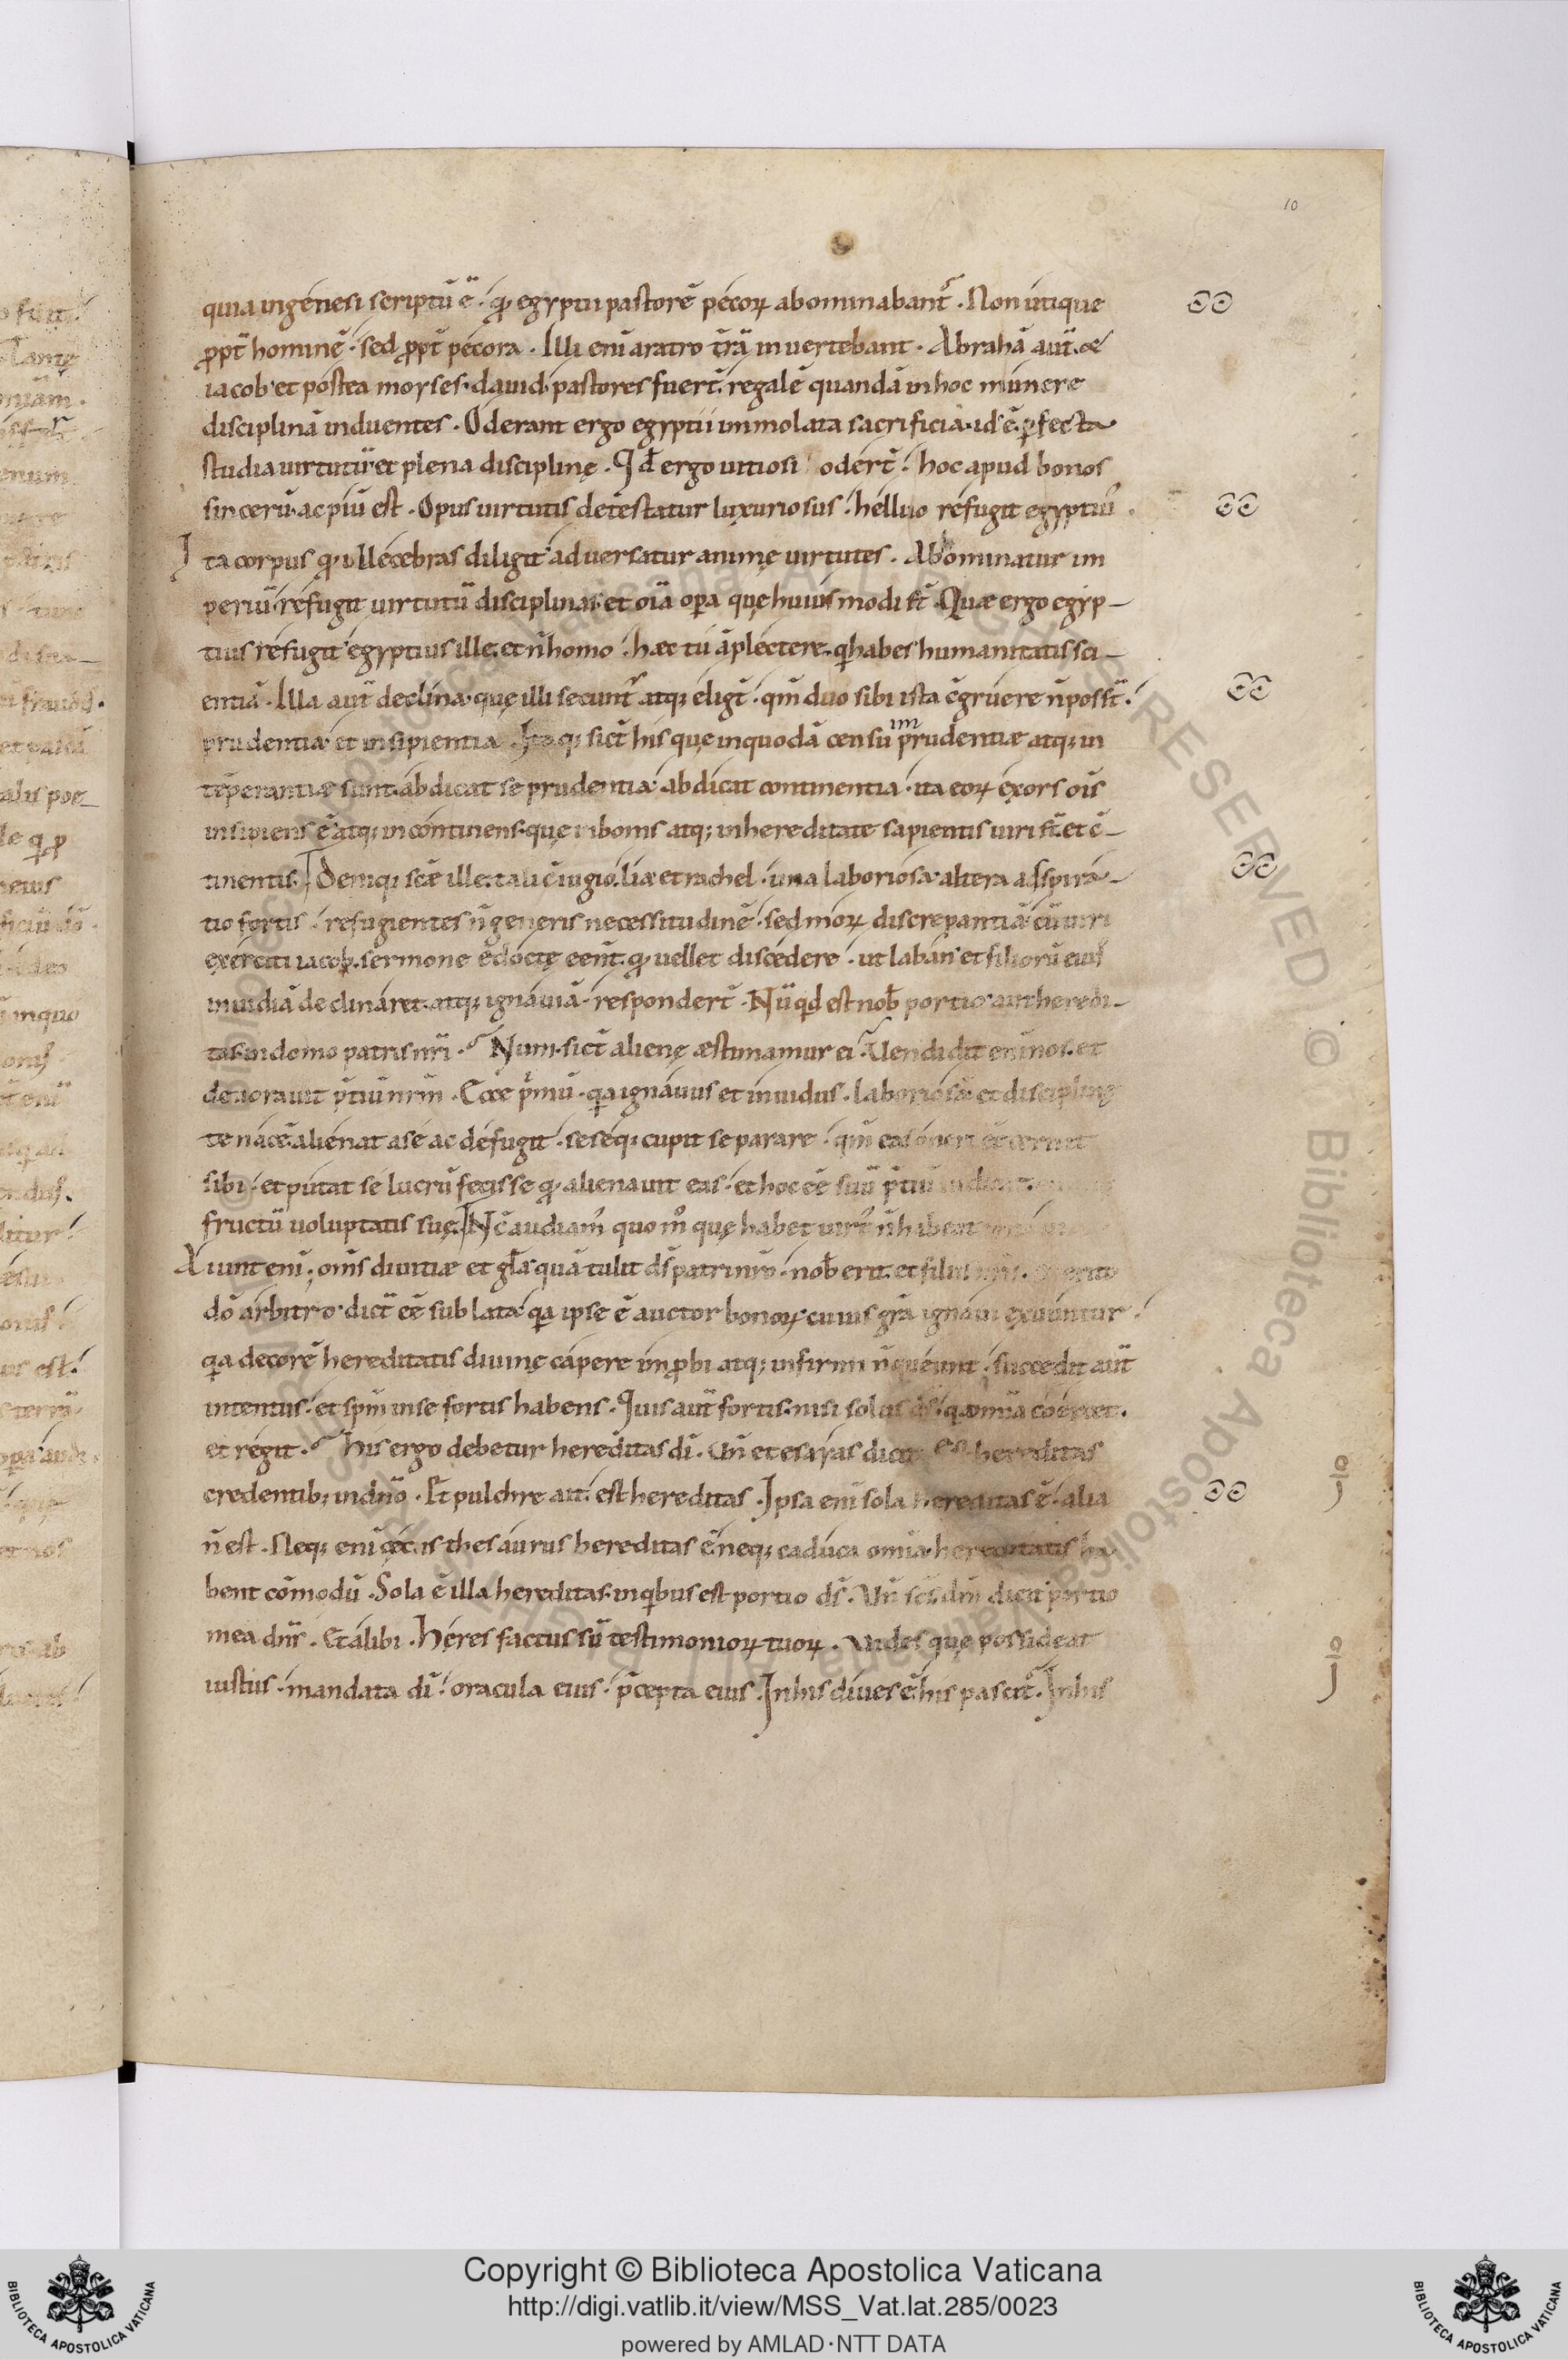 10
quia ingenesi scriptū ē· qđ egyptii pastorē pecoꝝ abominabant᷑. Non utique
ꝓpt̄ hominē· sed ꝓpt̄ pecora. Illi enī aratro t̄rā inuertebant. Abrahā aut̄ &
iacob· et postea moyses· dauid· pastores fuer̄t· regalē quandā inhoc munere
disciplinā induentes. Oderant ergo egyptii immolata sacrificia· id ē· ꝑfecta
studia uirtutū· et plena disciplinę. Qđ ergo uitiosi oder̄t· hoc apud bonos
sincerū· ac piū est. Opus uirtutis detestatur luxuriosus· helluo refugit egyptiu᷑.
Ita corpus qđ illecebras diligit· aduersatur animę uirtutes. Abominatur im
periū· refugit uirtutū disciplinas· et oīa oꝑa quę huius modi st̄. Quae ergo egyp–
tius refugit· egyptius ille· et n̄ homo· haec tu āplectere· q̇ habes humanitatis sci–
entiā. Illa aut̄ declina· quę illi secunt᷑ atq; eliḡt· qm̄ duo sibi ista c̄gruere n̄ poss̄t·
prudentia· et insipientia. Itaq; sic̄t his quę inquodā censu imprudentiae atq; in
tēperantiae sunt· abdicat se prudentia· abdicat continentia· ita eoꝝ exors oīs
insipiens ē atq; incontinens· quę in bonis atq; inhereditate sapientis uiri st̄· et c̄–
tinentis. Deniq; scae ille· tali c̄iugio· lia et rachel· una laboriosa· altera adspira–
tio fortis· refugientes n̄ generis necessitudinē· sed moꝝ discrepantiā· cū uiri
exerciti iacob· sermone edoctę eēnt· qđ uellet discedere· ut laban et filiorū eius
inuidiā declinaret· atq; ignauiā· responder̄t. Nūq̇d est nob̄ portio· aut heredi–
tas· indomo patris nr̄i. Num· sic̄t alienę aestimamur ei. Uendidit enī nos· et
deuorauit p̄tiū nr̄m. Ecce ṗmū· q̇a ignauus et inuidus· laboriosā· et disciplinę
tenacē· alienat ase ac defugit· seseq; cupit separare· qm̄ eas oneri eē cernit
sibi· et putat se lucrū fecisse qđ alienauit eas· et hoc eē suū p̄tiū
fructū uoluptatis suę. Nc̄ audiam᷑ quo m̊ quę habet uirt᷑ n̄ hibeat
Aiunt enī· om̄s diuitiae et gl̄a· quā tulit ds̄ patri nr̄o· nob̄ erit· et filiis nr̄is.
dō arbitro· dict̄ eē sublata· q̇a ipse ē auctor bonoꝝ· cuius gr̄a ignaui exuuntur·
q̇a decorē hereditatis diuinę capere imꝓbi atq; infirmi n̄ queunt· succedit aut̄
intentus· et sp̄m inse fortis habens. Quis aut̄ fortis· nisi solus ds̄· q̇ omnia coercet·
et regit. His ergo debetur hereditas dī. Un̄ et esaias dicit est hereditas
credentib; indn̄o. Et pulchre ait· est hereditas. Ipsa enī sola hereditas ē· alia
n̄ est. Neq; enī cęcus thesaurus hereditas ē· neq; caduca omnia· hereditatis ha
bent cōmodū. Sola ē illa hereditas· inq̇bus est portio ds̄. Un̄ scs̄ dm̄ dicit portio
mea dn̄s. Et alibi. Heres factus sū testimonioꝝ tuoꝝ. Uides quę possideat
iustus· mandata dī· oracula eius· p̄cepta eius. Inhis diues ē· his pascit᷑. Inhis
Copyright © Biblioteca Apostolica Vaticana
http://digi.vatlib.it/view/MSS_Vat.lat.285/0023
powered by AMLAD·NTT DATA